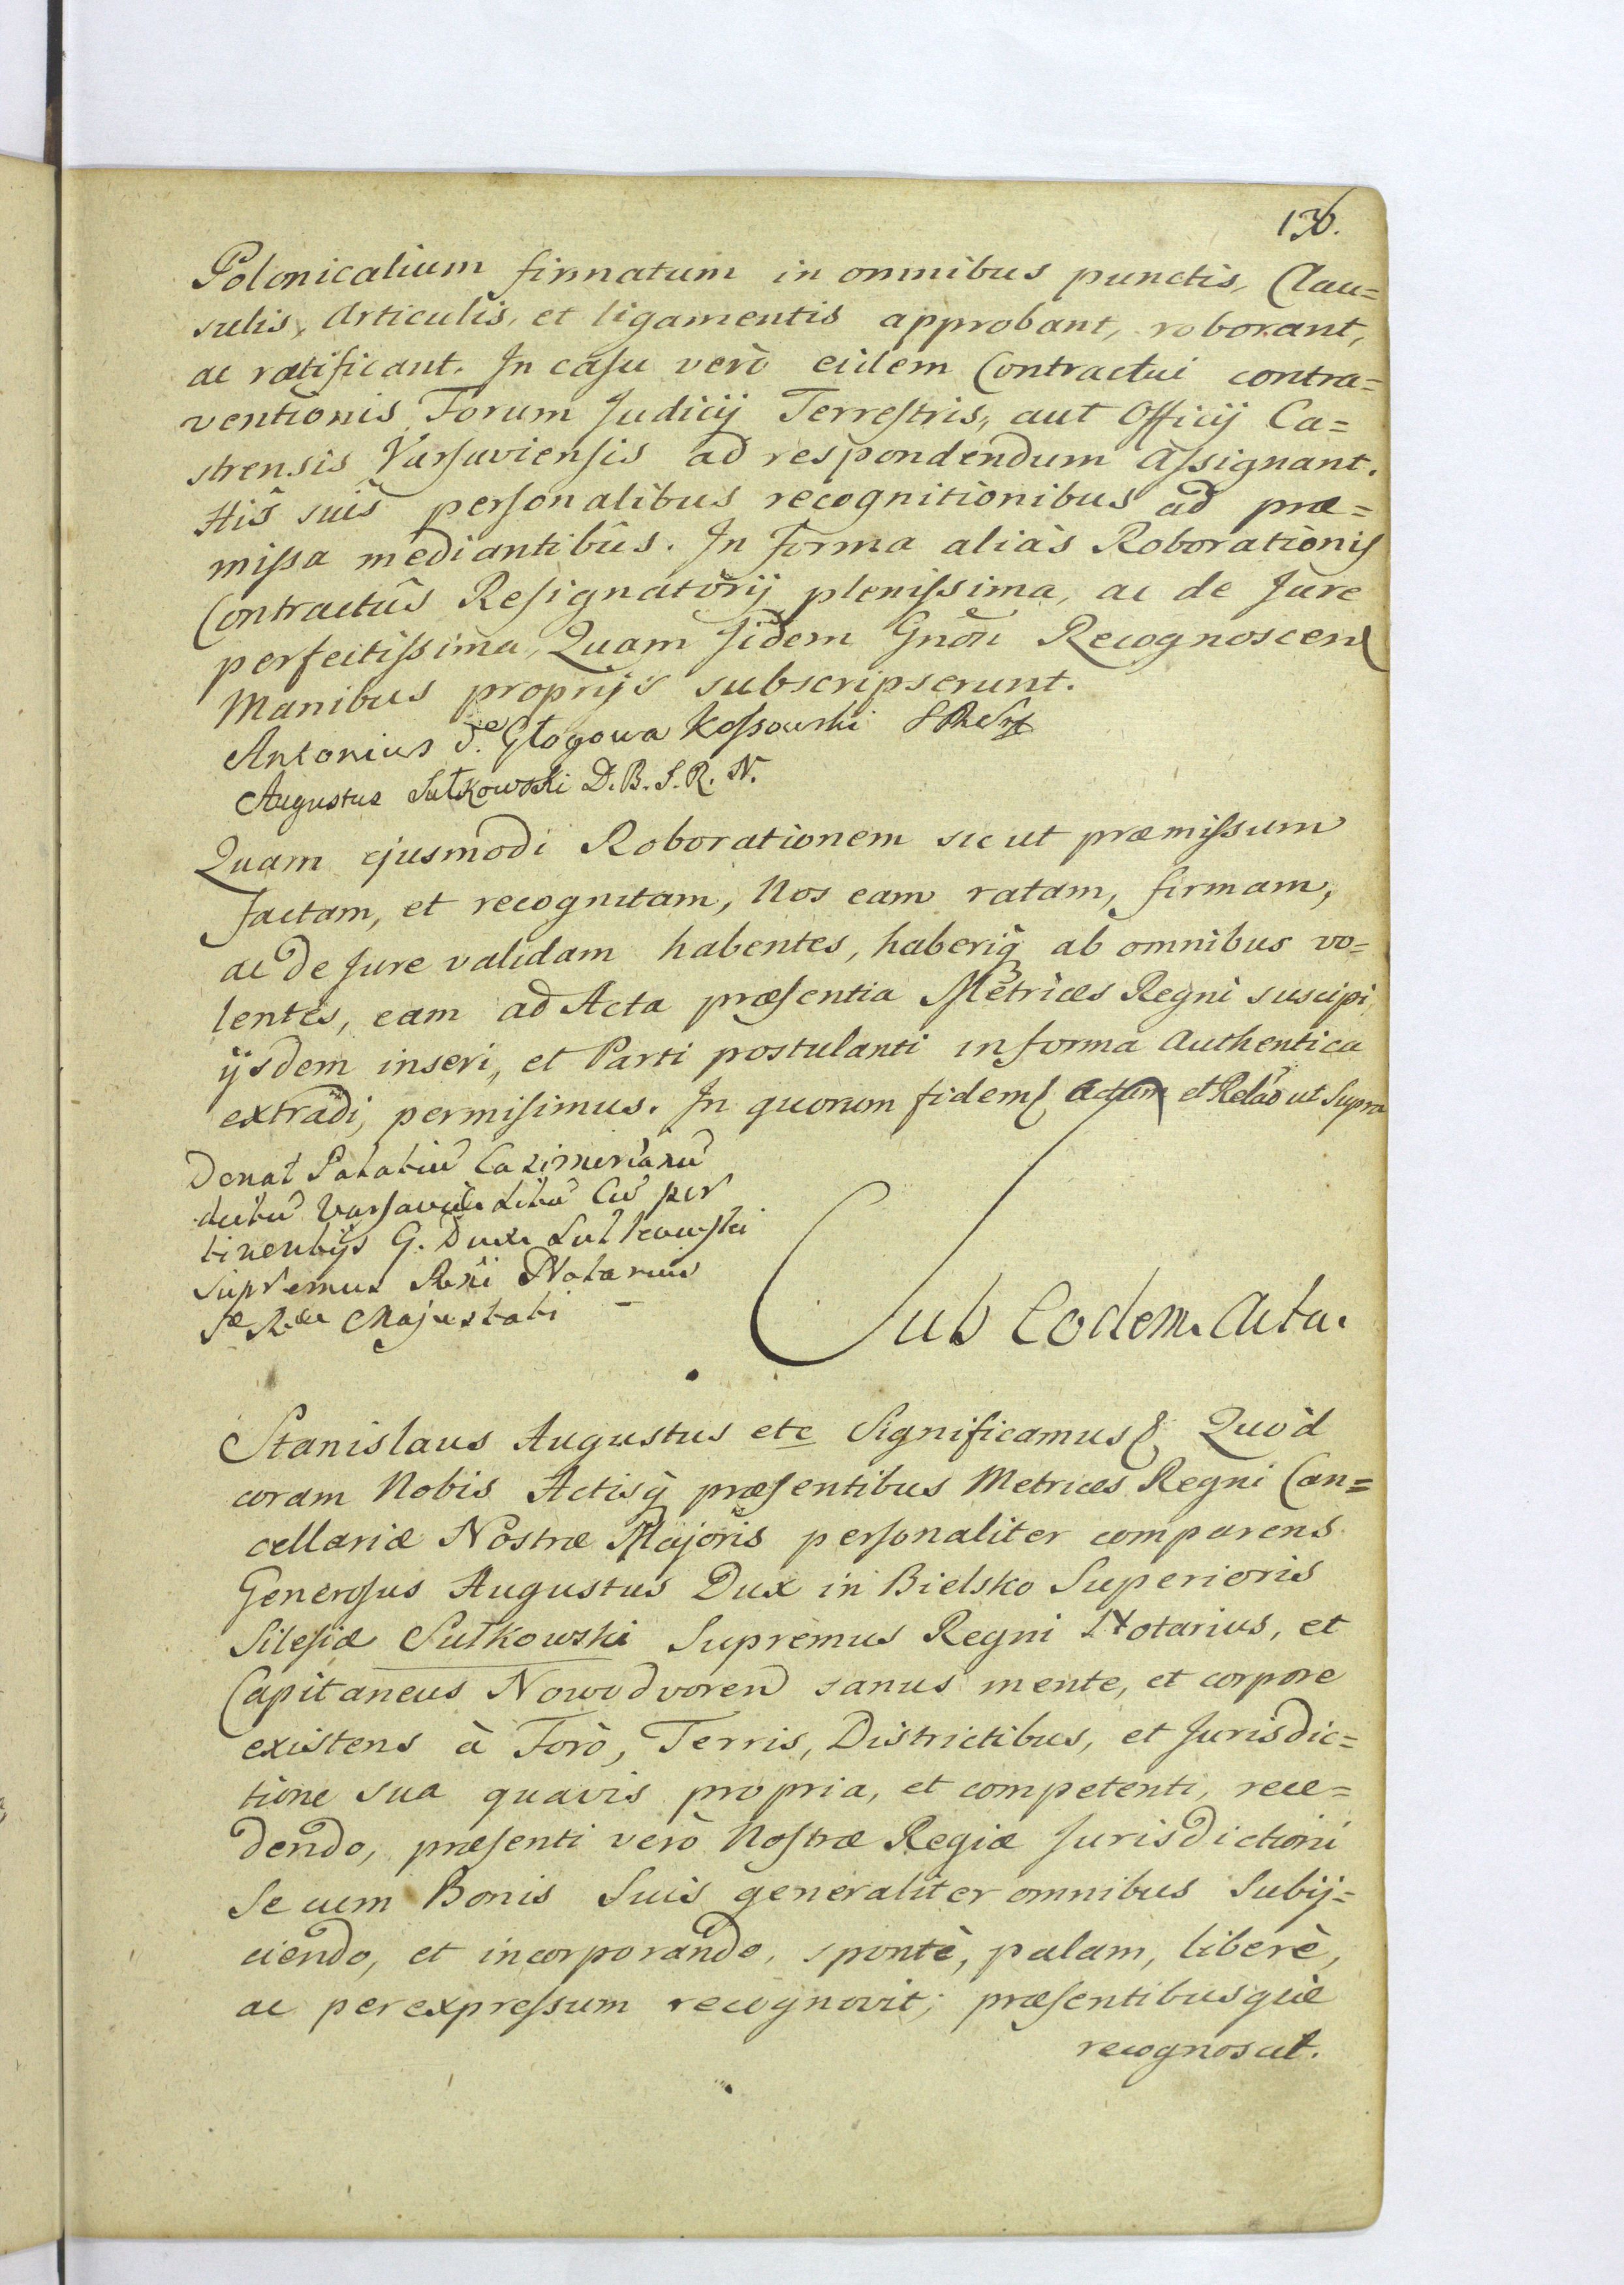 136.
Polonicalium firmatum in omnibus punctis, Clau=
sulis, Articulis, et ligamentis approbant, roborant,
ac ratificant. In casu verò eidem Contractui contra=
ventionis Forum Judicij Terrestris, aut Officij Ca=
strensis Varsaviensis ad respondendum assignant.
His suis personalibus recognitionibus ad præ=
missa mediantibus. In Forma aliàs Roborationis
Contractûs Resignatorij plenissima, ac de Jure
perfectissima, Quam Iidem Gnõli Recognoscen
Manibus proprijs subscripserunt.
Antonius de Głogowa Kossowski
Augustus Sułkowski D. B. S. R. N.
Quam ejusmodi Roborationem sicut præmissum
factam, et recognitam, Nos eam ratam, firmam,
ac de Jure validam habentes, haberiq̀ ab omnibus vo=
lentes, eam ad Acta præsentia Metrices Regni suscipi,
ijsdem inseri, et Parti postulanti in forma Authentica
extradi, permisimus. In quorum fidem Actum et Relão ut Supra
Donat Palatiũ Cazimirianũ
dictũ Varsaviæ sitũ Cũ per
tinentijs G. Dux Sulkowski
Supremus Rni Notarius
Sæ R. Majestati –
Sub Eodem. Acta.
Stanislaus Augustus etc Significamus Quòd
coram Nobis Actisq̀ præsentibus Metrices Regni Can=
cellariæ Nostræ Majoris personaliter comparens
Generosus Augustus Dux in Bielsko Superioris
Silesiæ Sułkowski Supremus Regni Notarius, et
Capitaneus Nowodvoren sanus mente, et corpore
existens à Forò, Terris, Districtibus, et Jurisdic=
tione sua quavis propria, et competenti, rece=
dendo, præsenti verò Nostræ Regiæ Jurisdictioni
Se cum Bonis Suis generaliter omnibus Subij=
ciendo, et incorporando, spontè, palam, liberè,
ac per expressum recognovit; præsentibusquè
recognoscit.